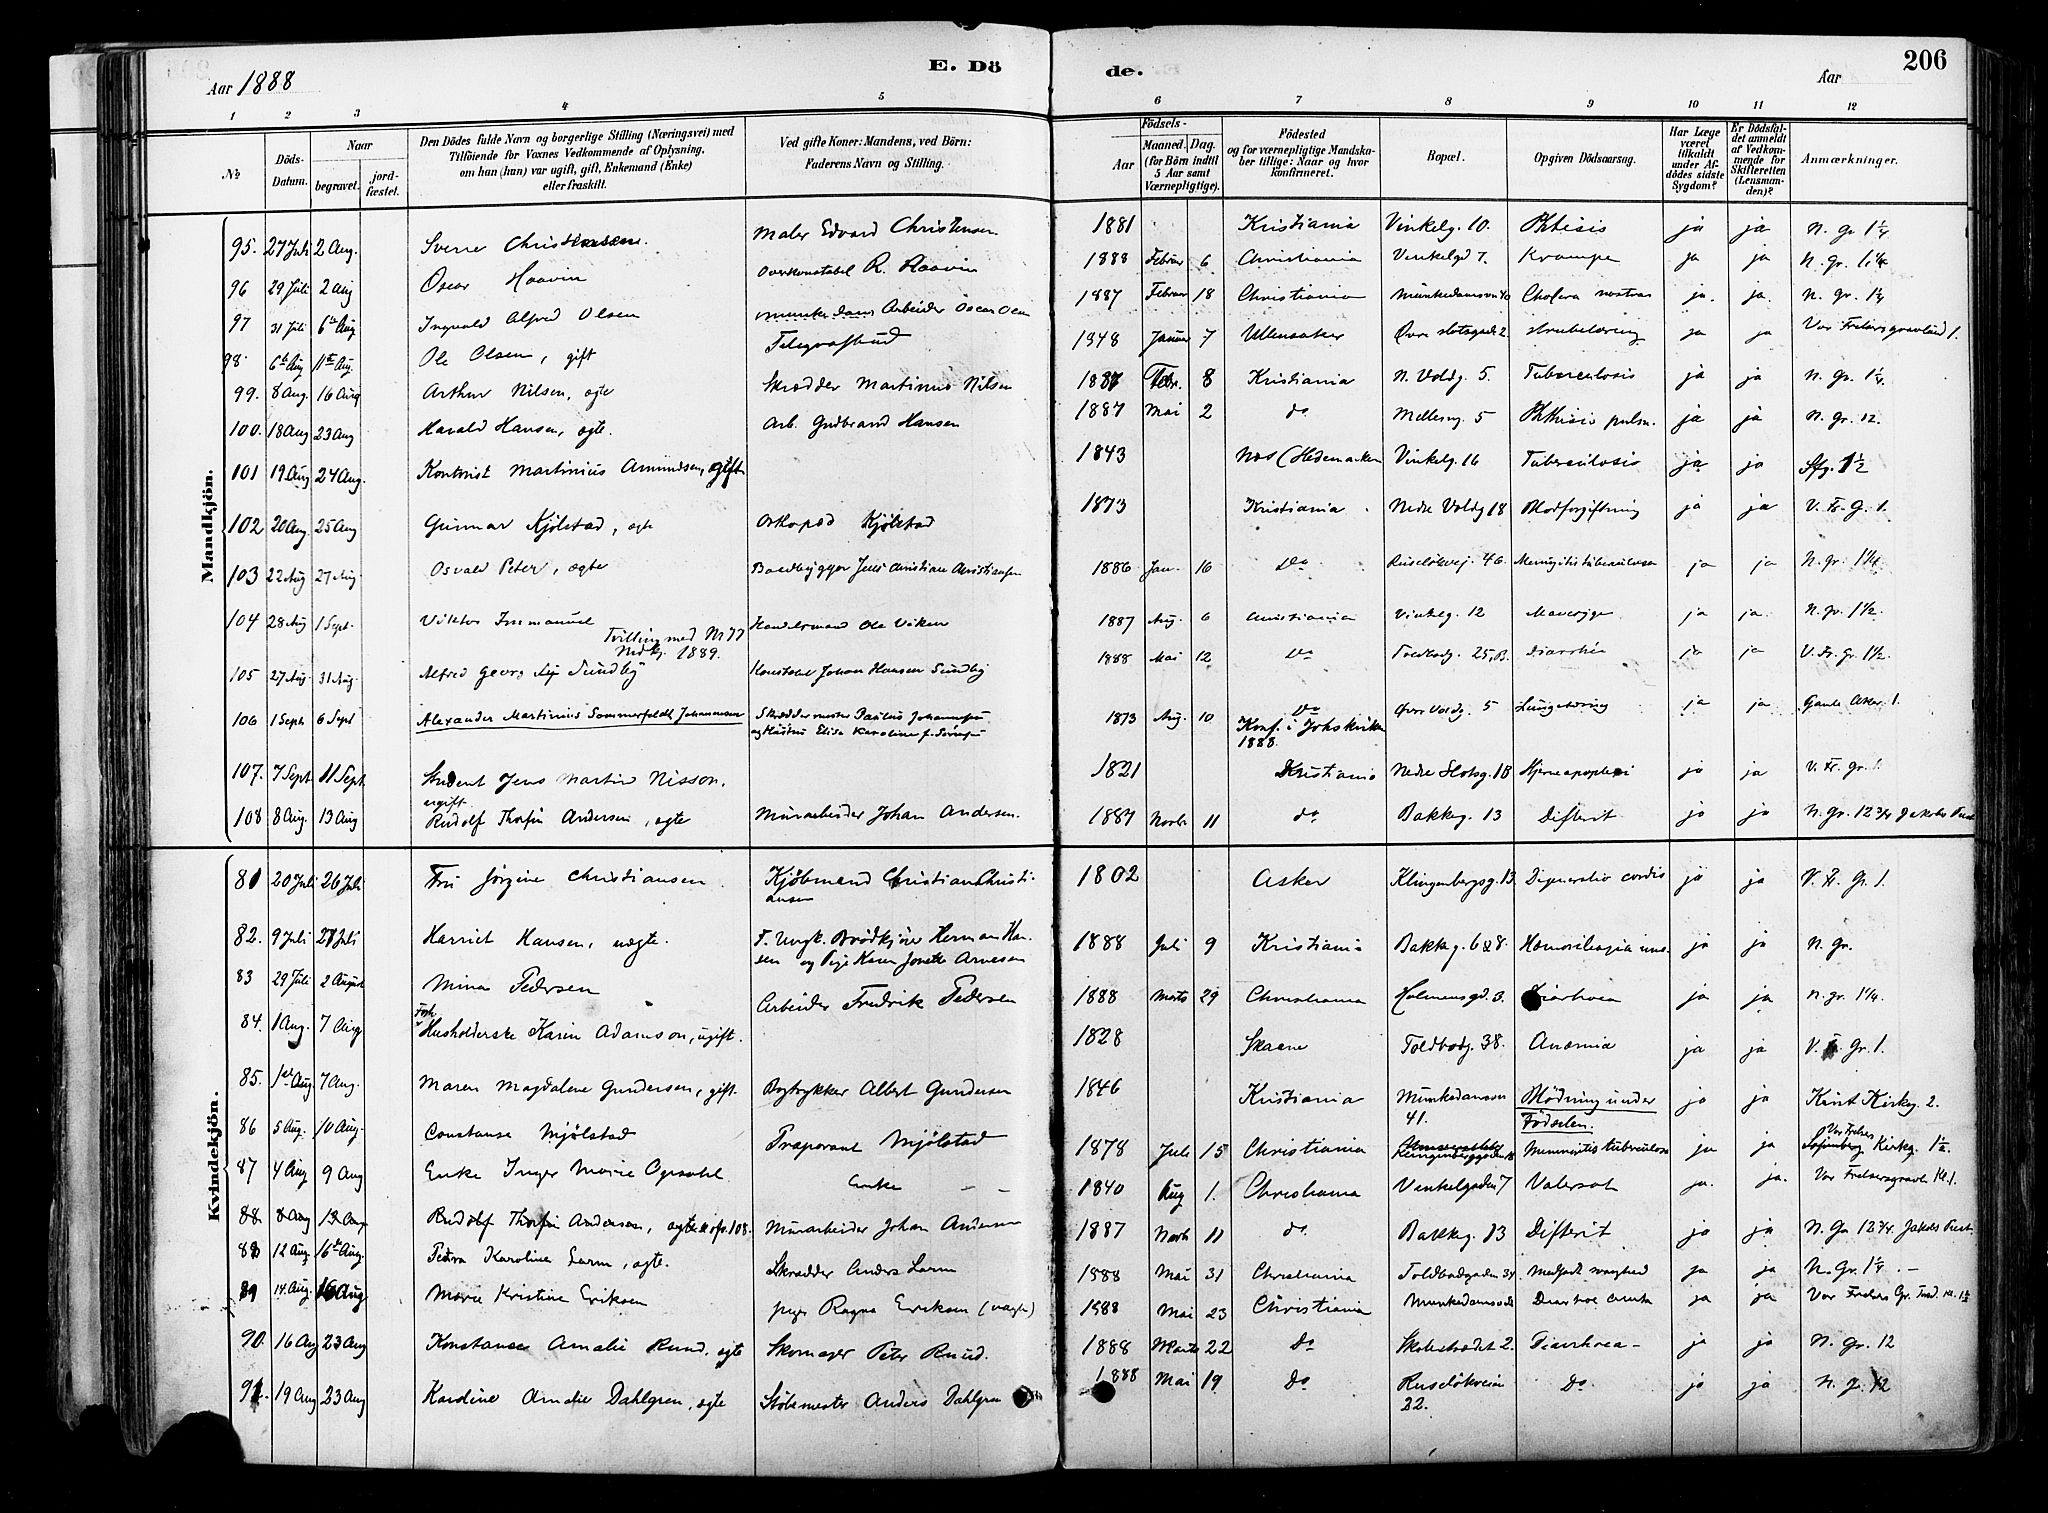 Aar 1888
E. Dö
de.
Aar
206
1 2 3 4 5 6 7 8 9 10 11 12
№
Döds-
Datum.
Naar
begravet.
jord-
fæstet.
Den Dödes fulde Navn og borgerlige Stilling (Næringsvei) med
Tilföiende for Voxnes Vedkommende af Oplysning,
om han (hun) var ugift, gift, Enkemand (Enke)
eller fraskilt.
Ved gifte Koner: Mandens, ved Börn:
Faderens Navn og Stilling.
Födsels-
Aar
Maaned.
Dag.
(for Börn indtil
5 Aar samt
Værnepligtige).
Födested
og for værnepligtige Mandska-
ber tillige: Naar og hvor
konfirmeret.
Bopæl.
Opgiven Dödsaarsag.
Har Læge
været
tilkaldt
under Af-
dödes sidste
Sygdom?
Er Dödsfal-
det anmeldt
af Vedkom-
mende for
Skifteretten
(Lensman-
den)?
Anmærkninger.
Mandkjön.
95. 27 Juli 2 Aug. Sverre Christensen. Maler Edvard Christensen 1881 Kristiania Vinkelg. 10. Phtisis ja ja N. gr 1 1/4
96 29 Juli 2 Aug Oscar Haavin Overkonstabel R. Haavin 1888 Februar 6 Christiania Vinkelgd 7. Krampe ja ja N. gr. 1 1/4
97 31 Juli 6te Aug Ingvald Alfred Olsen Arbeider Oscar Olsen 1887 Februar 18 Christiania Munkedamsvn 40 Cholera nostras ja. ja. N. gr. 1 1/4
98. 6te Aug 11te Aug. Ole Olsen, gift Telegrafbud 1848 Januar 7 Ullensaker Øvre slotsgade 2 strubetæring ja ja Vor Frelsersgravlund 1.
99. 8 Aug. 16 Aug Arthur Nilsen, ægte Skrædder Martinius Nilsen 1887 Febr. 8 Kristiania N. Voldg. 5. Tuberculosis ja ja N. gr. 1 1/4.
100. 18 Aug 23 Aug Harald Hansen, ægte. Arb. Gudbrand Hansen 1887 Mai 2 do Mellesvg. 5 Phthisis pulm. ja ja N. gr. 12.
101 19 Aug 24 Aug. Kontorist Martinius Amundsen, ugift 1843 Næs (Hedemarken Vinkelg. 16 Tuberculosis ja ja Sfg. 1 1/2
102 20 Aug. 25 Aug Gunnar Kjølstad, ægte Ortopæd Kjølstad 1873 Kristiania Nedre Voldg 18 Blodforgiftning ja ja V. Fr. G. 1.
103 22 Aug 27 Aug. Osvald Peter, ægte Baadbygger Jens Christian Christiansen 1886 Jan. 16 Do Ruseløkvej. 46. Meningitis tuberculosa ja ja N. gr. 1 1/4.
104 28 Aug 1 Sept. Viktor Immanuel Handelsmand Ole Viken 1887 Aug. 6 Christiania Vinkelg. 12 Mavesyge ja ja. N. gr. 1 1/2.
Tvilling med Nr 77
Mdkj. 1889.
105 27 Aug. 31 Aug. Alfred Georg Sundby Konstabel Johan Hansen Sundby 1888 Mai 12 Do Toldbodg. 25, B. Diarrhé ja ja V. Fr. gr. 1 1/2.
106 1 Septr 6 Sept Alexander Martinius Sommerfeldt Johannessen Skræddermester Paulus Johannesen
og Hustru Elise Karoline f. Sørensen 1873 Aug. 10 Do
Konf. i Johskirken
1888. Øvre Voldg. 5 Lungetæring ja ja Gamle Aker 1.
107. 7 Sept. 11 Sept. Student Jens Martin Nisson.
ugift 1821 Kristiania Nedre Slotsg. 18 Hjerneapoplexi ja ja V. Fr. gr. 1.
108 8 Aug. 13 Aug Rudolf Thorfin Andersen, ægte Murarbeider Johan Andersen. 1887 Novbr 11 do Bakkeg. 13 Difterit ja ja N. Gr. 12 3/4 Jakobs Præst
Kvindekjön.
81 20 Juli 26 Juli Fru Jörgine Christiansen Kjöbmand Christian Christi-
ansen 1802 Asker Klingenbergsg. 13. Digeneratio cordis ja ja V. Fr. Gr. 1.
82. 9 Juli 27 Juli Harriet Hansen, uægte. F. Ungk. Brödkjörer Herman Han-
sen og Pige Karen Josette Arnesen 1888 Juli 9 Kristiania Bakkeg. 6 & 8. ja ja N. Gr.
83 29 Juli 2 August Mina Pedersen Arbeider Fredrik Pedersen 1888 Marts 29 Christiania Holmensgd. 3. Diarhoea ja ja N. gr. 1 1/4.
84. 1 Aug. 7 Aug. Fhv.
Husholderske Karin Adamson, ugift. 1828 Skaane Toldbodg. 38. Anæmia ja ja V. Fr. Gr. 1.
85. 1ste Aug 7 Aug. Maren Magdalene Gundersen, gift. Bogtrykker Albert Gundersen 1846 Kristiania Munkedamsvn
41. Blödning under
Födselen. ja ja Krist Kirkeg. 2.
86 5 Aug. 10 Aug. Constanse Mjølstad Præparant Mjølstad 1878 Juli 15 Christiania Klingenberggaden 18 Meningitis tuberculosa ja ja Vor Frelsers
Kirkeg. 1 1/2
87 4 Aug 9 Aug Enke Inger Marie Opsahl. Enke — — 1840 Aug 1. Christiania Vinkelgaden 7 Vatersot ja. ja. Vor Frelsersgravl. Kl. 1.
88 8 Aug 13 Aug. Rudolf Thorfin Andersen, ægte se ofv. 108. Murarbeider Johan Andersen 1887 Novb 11 do Bakkeg. 13 Difterit ja ja N. Gr 12 3/4. Jakobs Præst.
88 12 Aug. 16te Aug. Petra Karoline Larm, ægte. Skrædder Anders Larm 1888 Mai 31 Christiania Toldbodgaden 34 Medfødt svaghed ja ja N. Gr. 1 1/4. —
89 14. Aug. 16 Aug Marie Kristine Eriksen pige Ragna Eriksen (uægte) 1888 Mai 23 Christiania Munkedamsvei Diarhoe acuta ja ja Vor Frelsers Gr. Kl. 1 1/2
90. 16 Aug 23 Aug Konstanse Amalie Ruud, ægte Skomager Peter Ruud. 1888 Marts 22 Do Skolestrædet 2. Diarrhoea — ja ja N. Gr. 12
91. 19 Aug 23 Aug Karoline Amalie Dahlgren, ægte Støbemester Anders Dahlgren 1888 Mai 19 Do Ruseløkveien
22. Do ja ja N. gr. 12